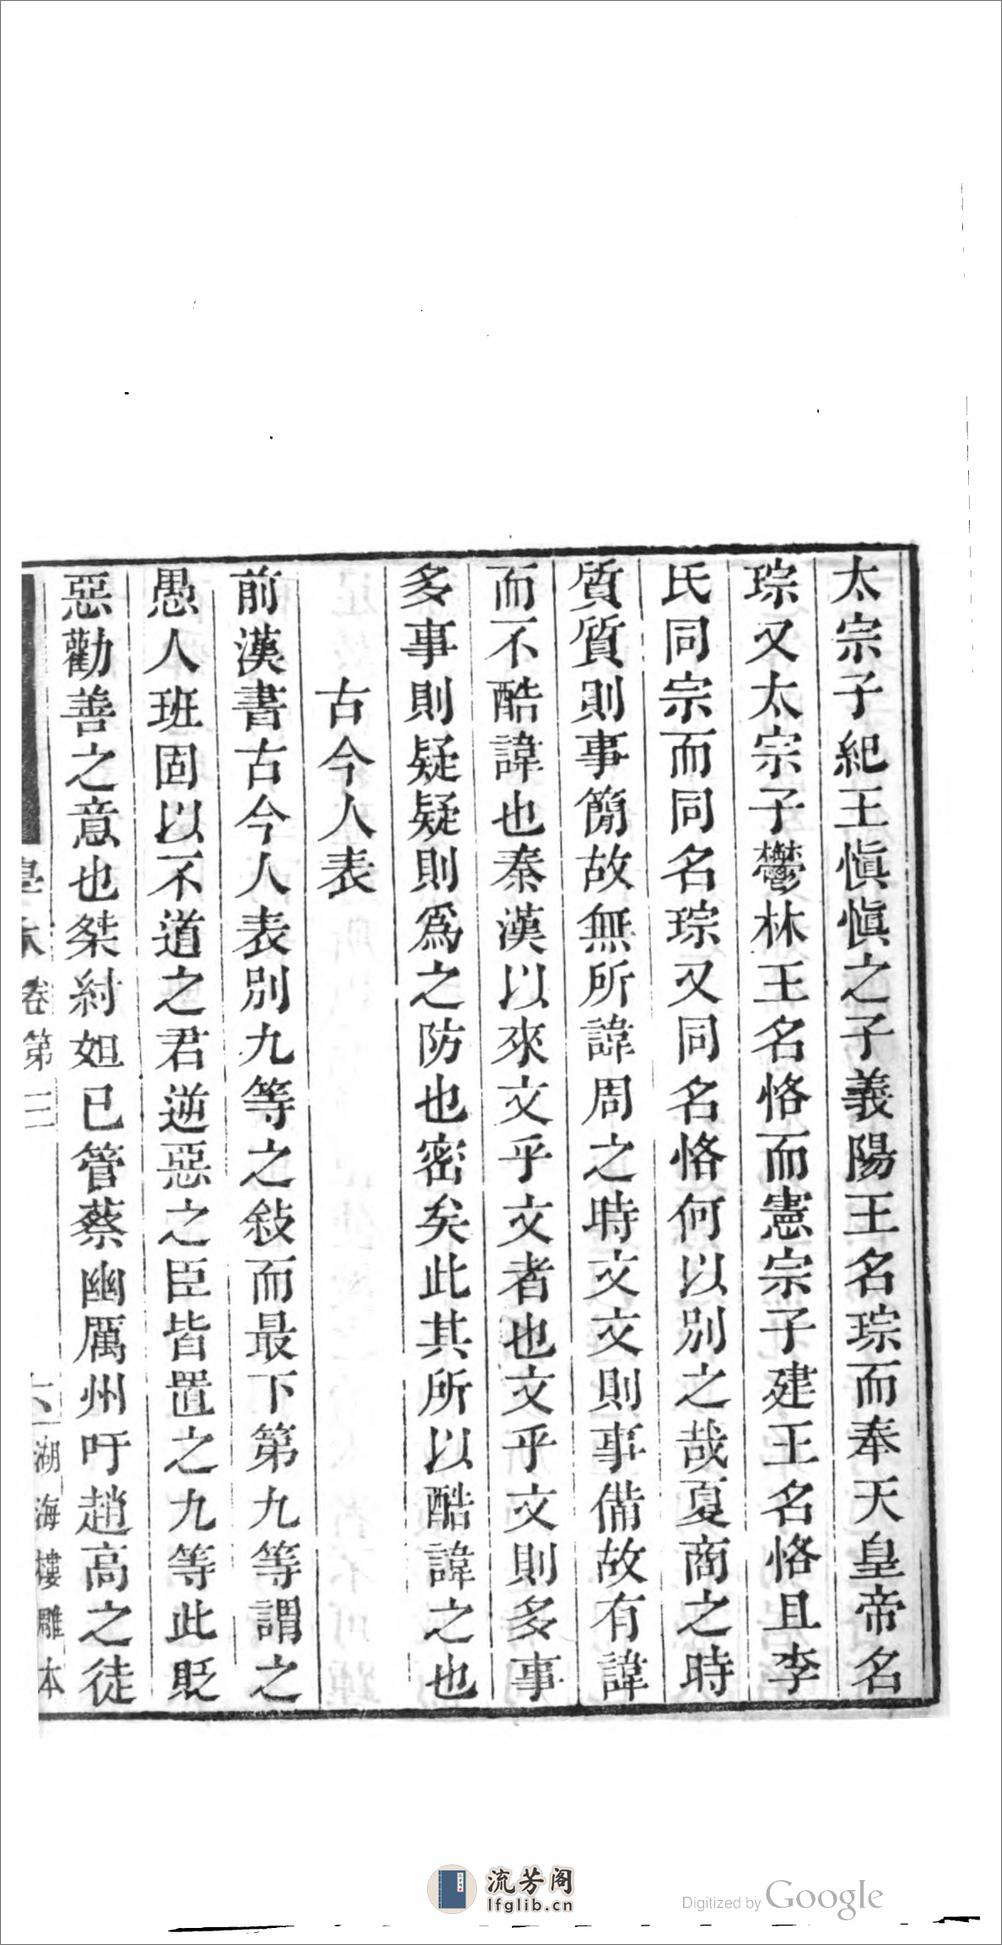 太宗子紀王慎慎之子義陽王名琮而奉天皇帝名
琮又太宗子鬱林王名恪而憲宗子建王名恪且李
氏同宗而同名琮又同名恪何以別之哉夏商之時
質質則事簡故無所諱周之時文文則事備故有諱
而不酷諱也秦漢以來文乎文者也文乎文則多事
多事則疑疑則為之防也密矣此其所以酷諱之也
古今人表
前漢書古今人表別九等之敍而最下第九等謂之
愚人班固以不道之君逆惡之臣皆置之九等此貶
惡勸善之意也桀紂妲已管蔡幽厲州吁趙高之徒
卷第三
六
湖海樓雕本
流芳阁
lfglib.cn
Digitized by Google